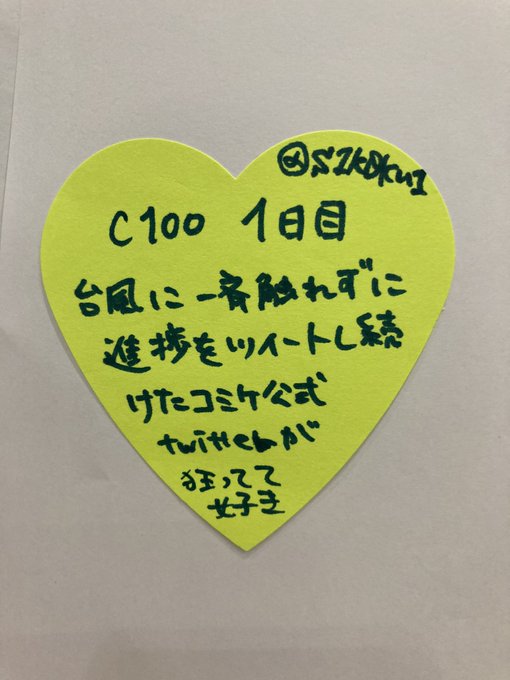 @s1k0ku1
C100 1日目
台風に一斉触れずに
進捗をツイートし続
けたコミケ公式
twitterが
狂ってて
好き